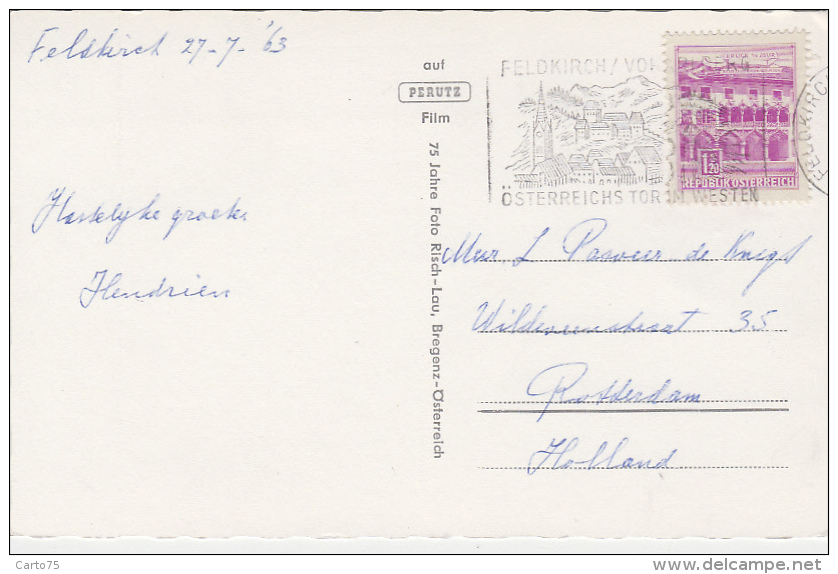 Feldkirch 27-7-'63
Hartelijke groeten
Hendrien
auf
PERUTZ
Film
75 Jahre Foto Risch-Lau, Bregenz-Österreich
FELDKIRCH/VO
ÖSTERREICHS TOR IM WESTEN
FELDKIRCH
1.20
REPUBLIK ÖSTERREICH
L Pasveer de
35
Rotterdam
Holland
Carto75
delcampe.net